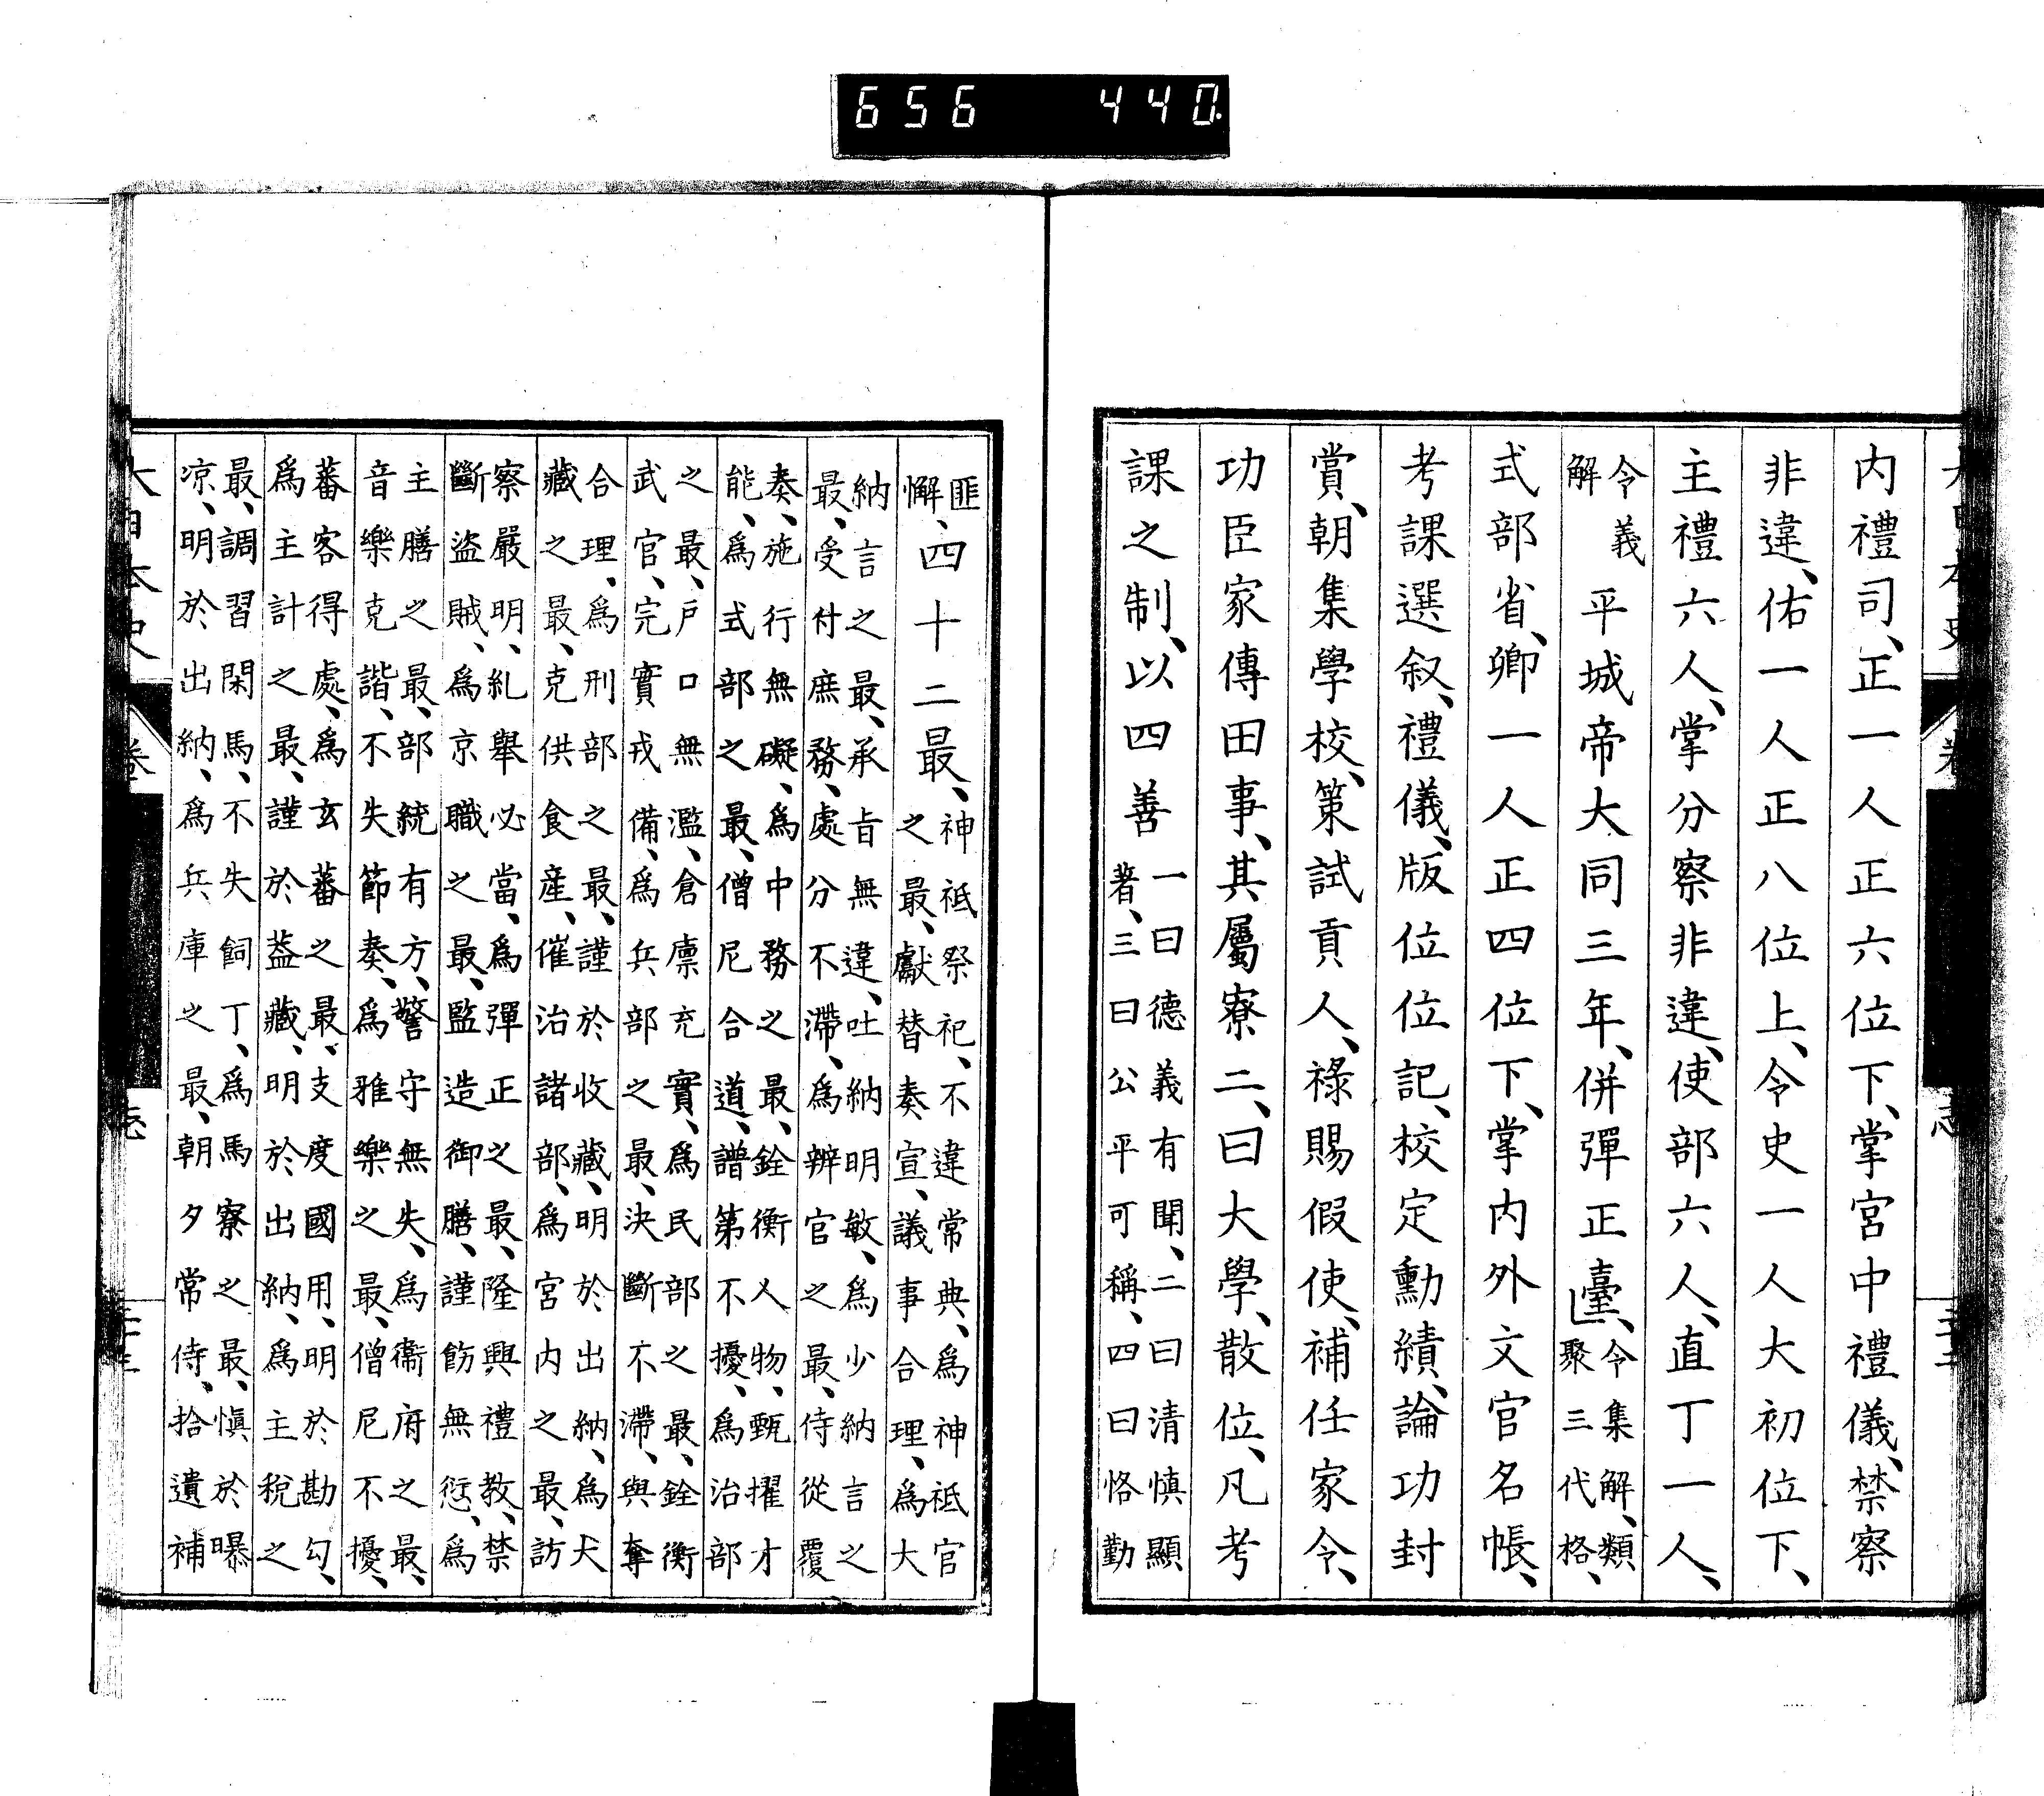 656 440
内禮司、正一人正六位下、掌宮中禮儀、禁察
非違、佑一人正八位上、令史一人大初位下、
主禮六人、掌分察非違、使部六人、直丁一人、
令義
解
平城帝大同三年、併彈正臺、
令集解、類
聚三代格、
式部省、卿一人正四位下、掌內外文官名帳、
考課選叙、禮儀、版位位記、校定勳績、論功封
賞、朝集學校、策試貢人、祿賜假使、補任家令、
功臣家傳田事、其屬寮二、曰大學、散位、凡考
課之制、以四善
一曰德義有聞、二曰清慎顯
著、三曰公平可稱、四曰恪勤
匪
懈、
四十二最、
神祇祭祀、不違常典、爲神祇官
之最、獻替奏宣、議事合理、爲大
納言之最、承旨無違、吐納明敏、爲少納言之
最、受付庶務、處分不滯、爲辨官之最、侍從覆
奏、施行無礙、爲中務之最、銓衡人物、甄擢才
能、爲式部之最、僧尼合道、譜第不擾、爲治部
之最、戶口無濫、倉廩充實、爲民部之最、銓衡
武官、完實戎備、爲兵部之最、決斷不滯、與奪
合理、爲刑部之最、謹於收藏、明於出納、爲大
藏之最、克供食產、催治諸部、爲宮內之最、訪
察嚴明、糺舉必當、爲彈正之最、隆興禮教、禁
斷盜賊、爲京職之最、監造御膳、謹飭無愆、爲
主膳之最、部統有方、警守無失、爲衞府之最、
音樂克諧、不失節奏、爲雅樂之最、僧尼不擾、
蕃客得處、爲玄蕃之最、支度國用、明於勘勾、
爲主計之最、謹於葢藏、明於出納、爲主稅之
最、調習閑馬、不失飼丁、爲馬寮之最、愼於曝
凉、明於出納、爲兵庫之最、朝夕常侍、拾遺補
大日本史 卷 志